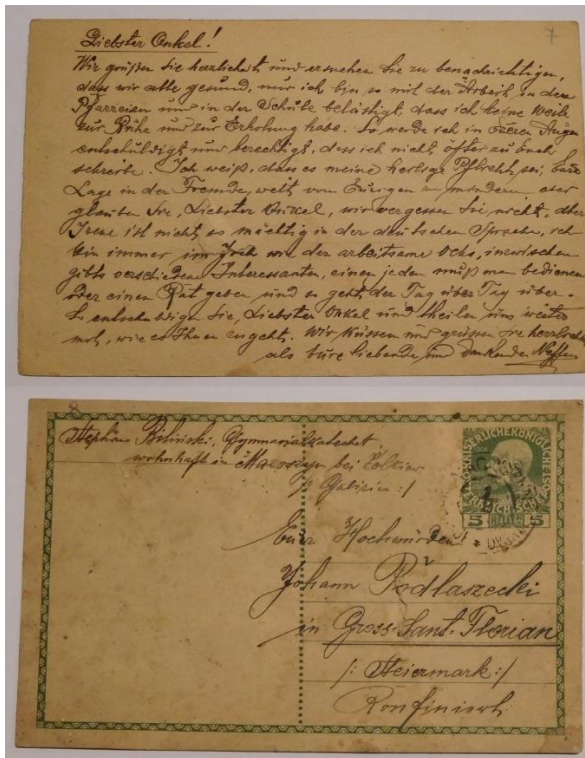 7
Liebster Onkel!
Wir grüßen Sie herzlichst und ersuchen Sie zu benachrichtigen,
dass wir alle gesund, nur ich bin so mit der Arbeit in den
Pfarreien und in der Schule belästigt, dass ich keine Weile
zur Ruhe und zur Erholung habe. So werde ich in Eueren Augen
entschuldigt und berechtigt, dass ich nicht öfter an Euch
schreibe. Ich weiß, dass es meine heilige Pflicht sei, Eure
Lage in der Fremde, weit von Eurigen mindern aber
glauben Sie, Liebster Onkel, wir vergessen Sie nicht, aber
Irene ist nicht so mächtig in der deutschen Sprache, ich
bin immer im Joch wie der arbeitsame Ochs, inzwischen
gibts verschiedene Interessanten, einen jeden muß man bedienen
oder einen Rat geben und so geht der Tag über Tag über.
So entschuldigen Sie, Liebster Onkel und theilen uns weiter
mit, wie es Ihnen zugeht. Wir küssen und grüssen Sie herzlichst
als Eure liebende und dankende Neffen
8
Stephan Biliński, Gymnasialkatechet
wohnhaft in bei Zolkiew
/: Galizien :/
KAISERLICHE KÖNIGLICHE
ÖSTERREICHISCHE POST
5 HELLER 5
Euer Hochwürden
Johann Podlaszecki
in Gross-Sant-Florian
/: Steiermark :/
Konfiniert